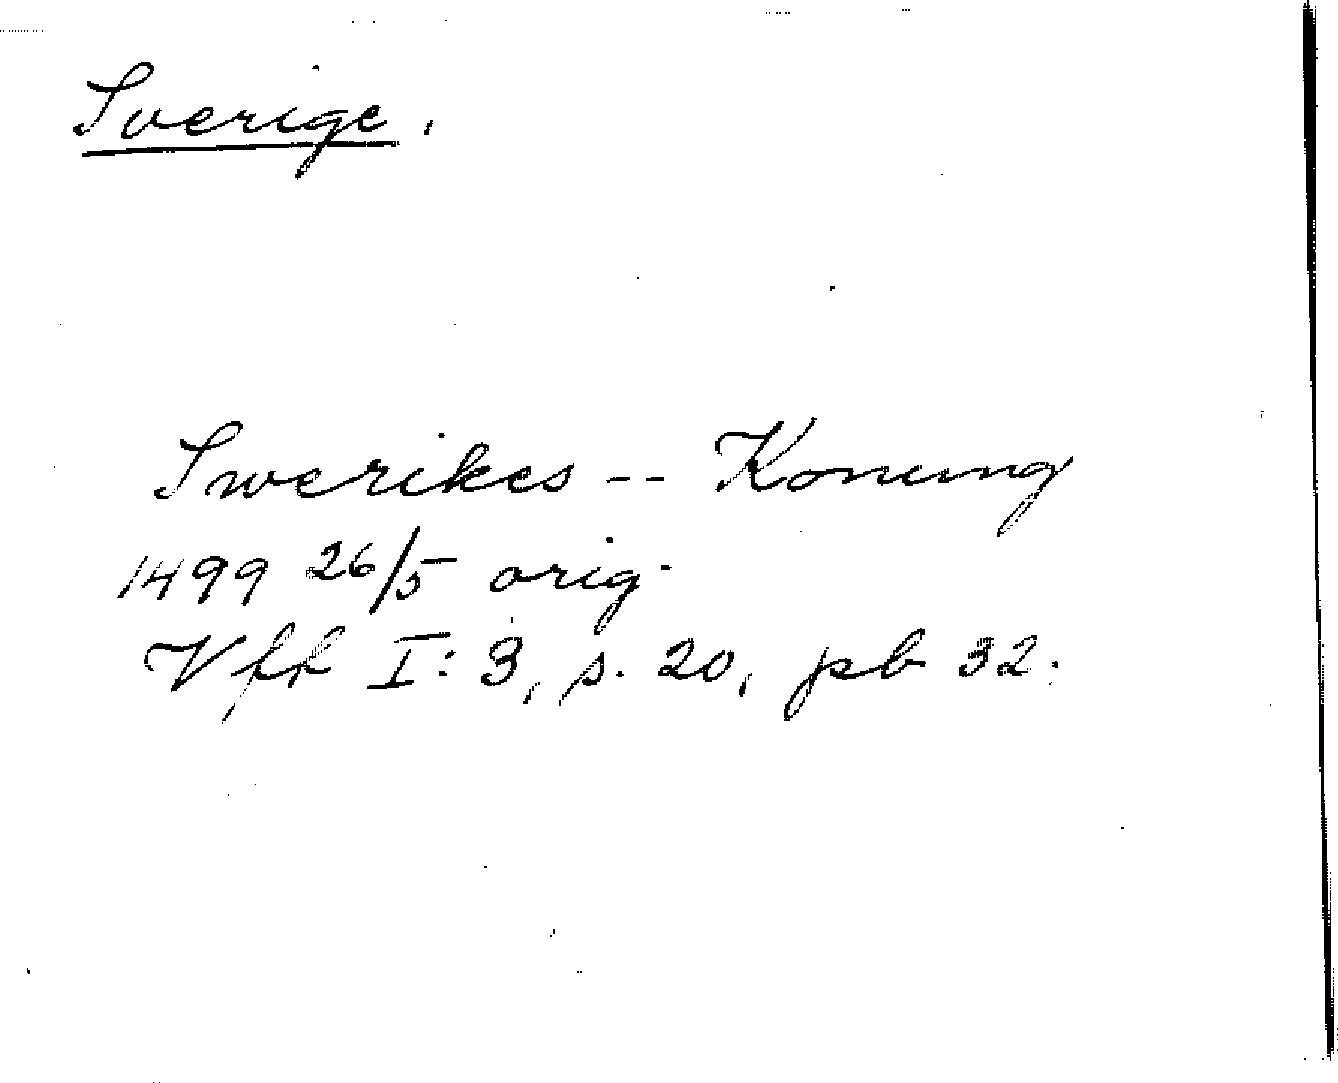 Sverige.
Swerikes -- Konung
1499 26/5 orig.
Vfh I: 3, s. 20, pb 32.